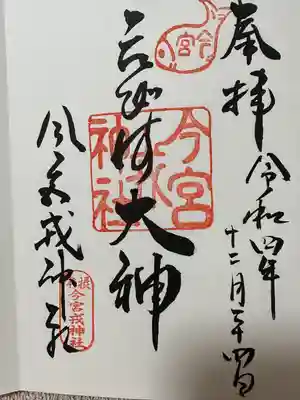 今宮
奉拝
令和四年
十二月二十四日
大神
今宮戎神社
今宮戎神社
今宮戎神社